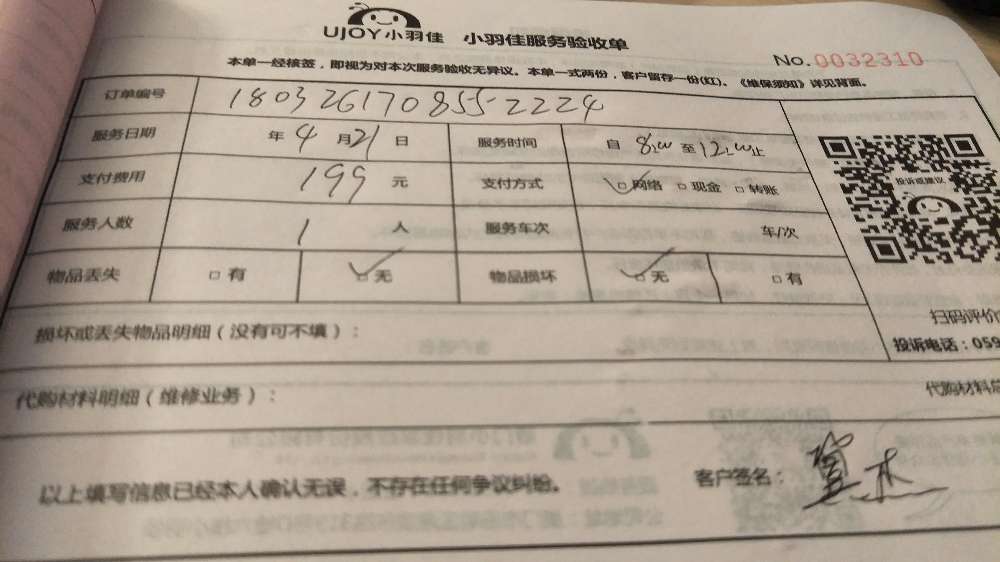 UJOY小羽佳 小羽佳服务验收单
No.0032310
本单一经核签，即视为对本次服务验收无异议。本单一式两份，客户留存一份(红)。《维保须知》详见背面。
订单编号 180326170855-2224
服务日期 年 4 月 21 日 服务时间 自 8:00 至 12:00 止
投诉或建议
支付费用 199 元 支付方式 ☑网络 □现金 □转账
服务人数 1 人 服务车次 车/次
物品丢失 □有 ☑无 物品损坏 ☑无 □有
扫码评价
损坏或丢失物品明细（没有可不填）：
投诉电话：059
代购材料明细（维修业务）：
代购材料总
以上填写信息已经本人确认无误，不存在任何争议纠纷。
客户签名：